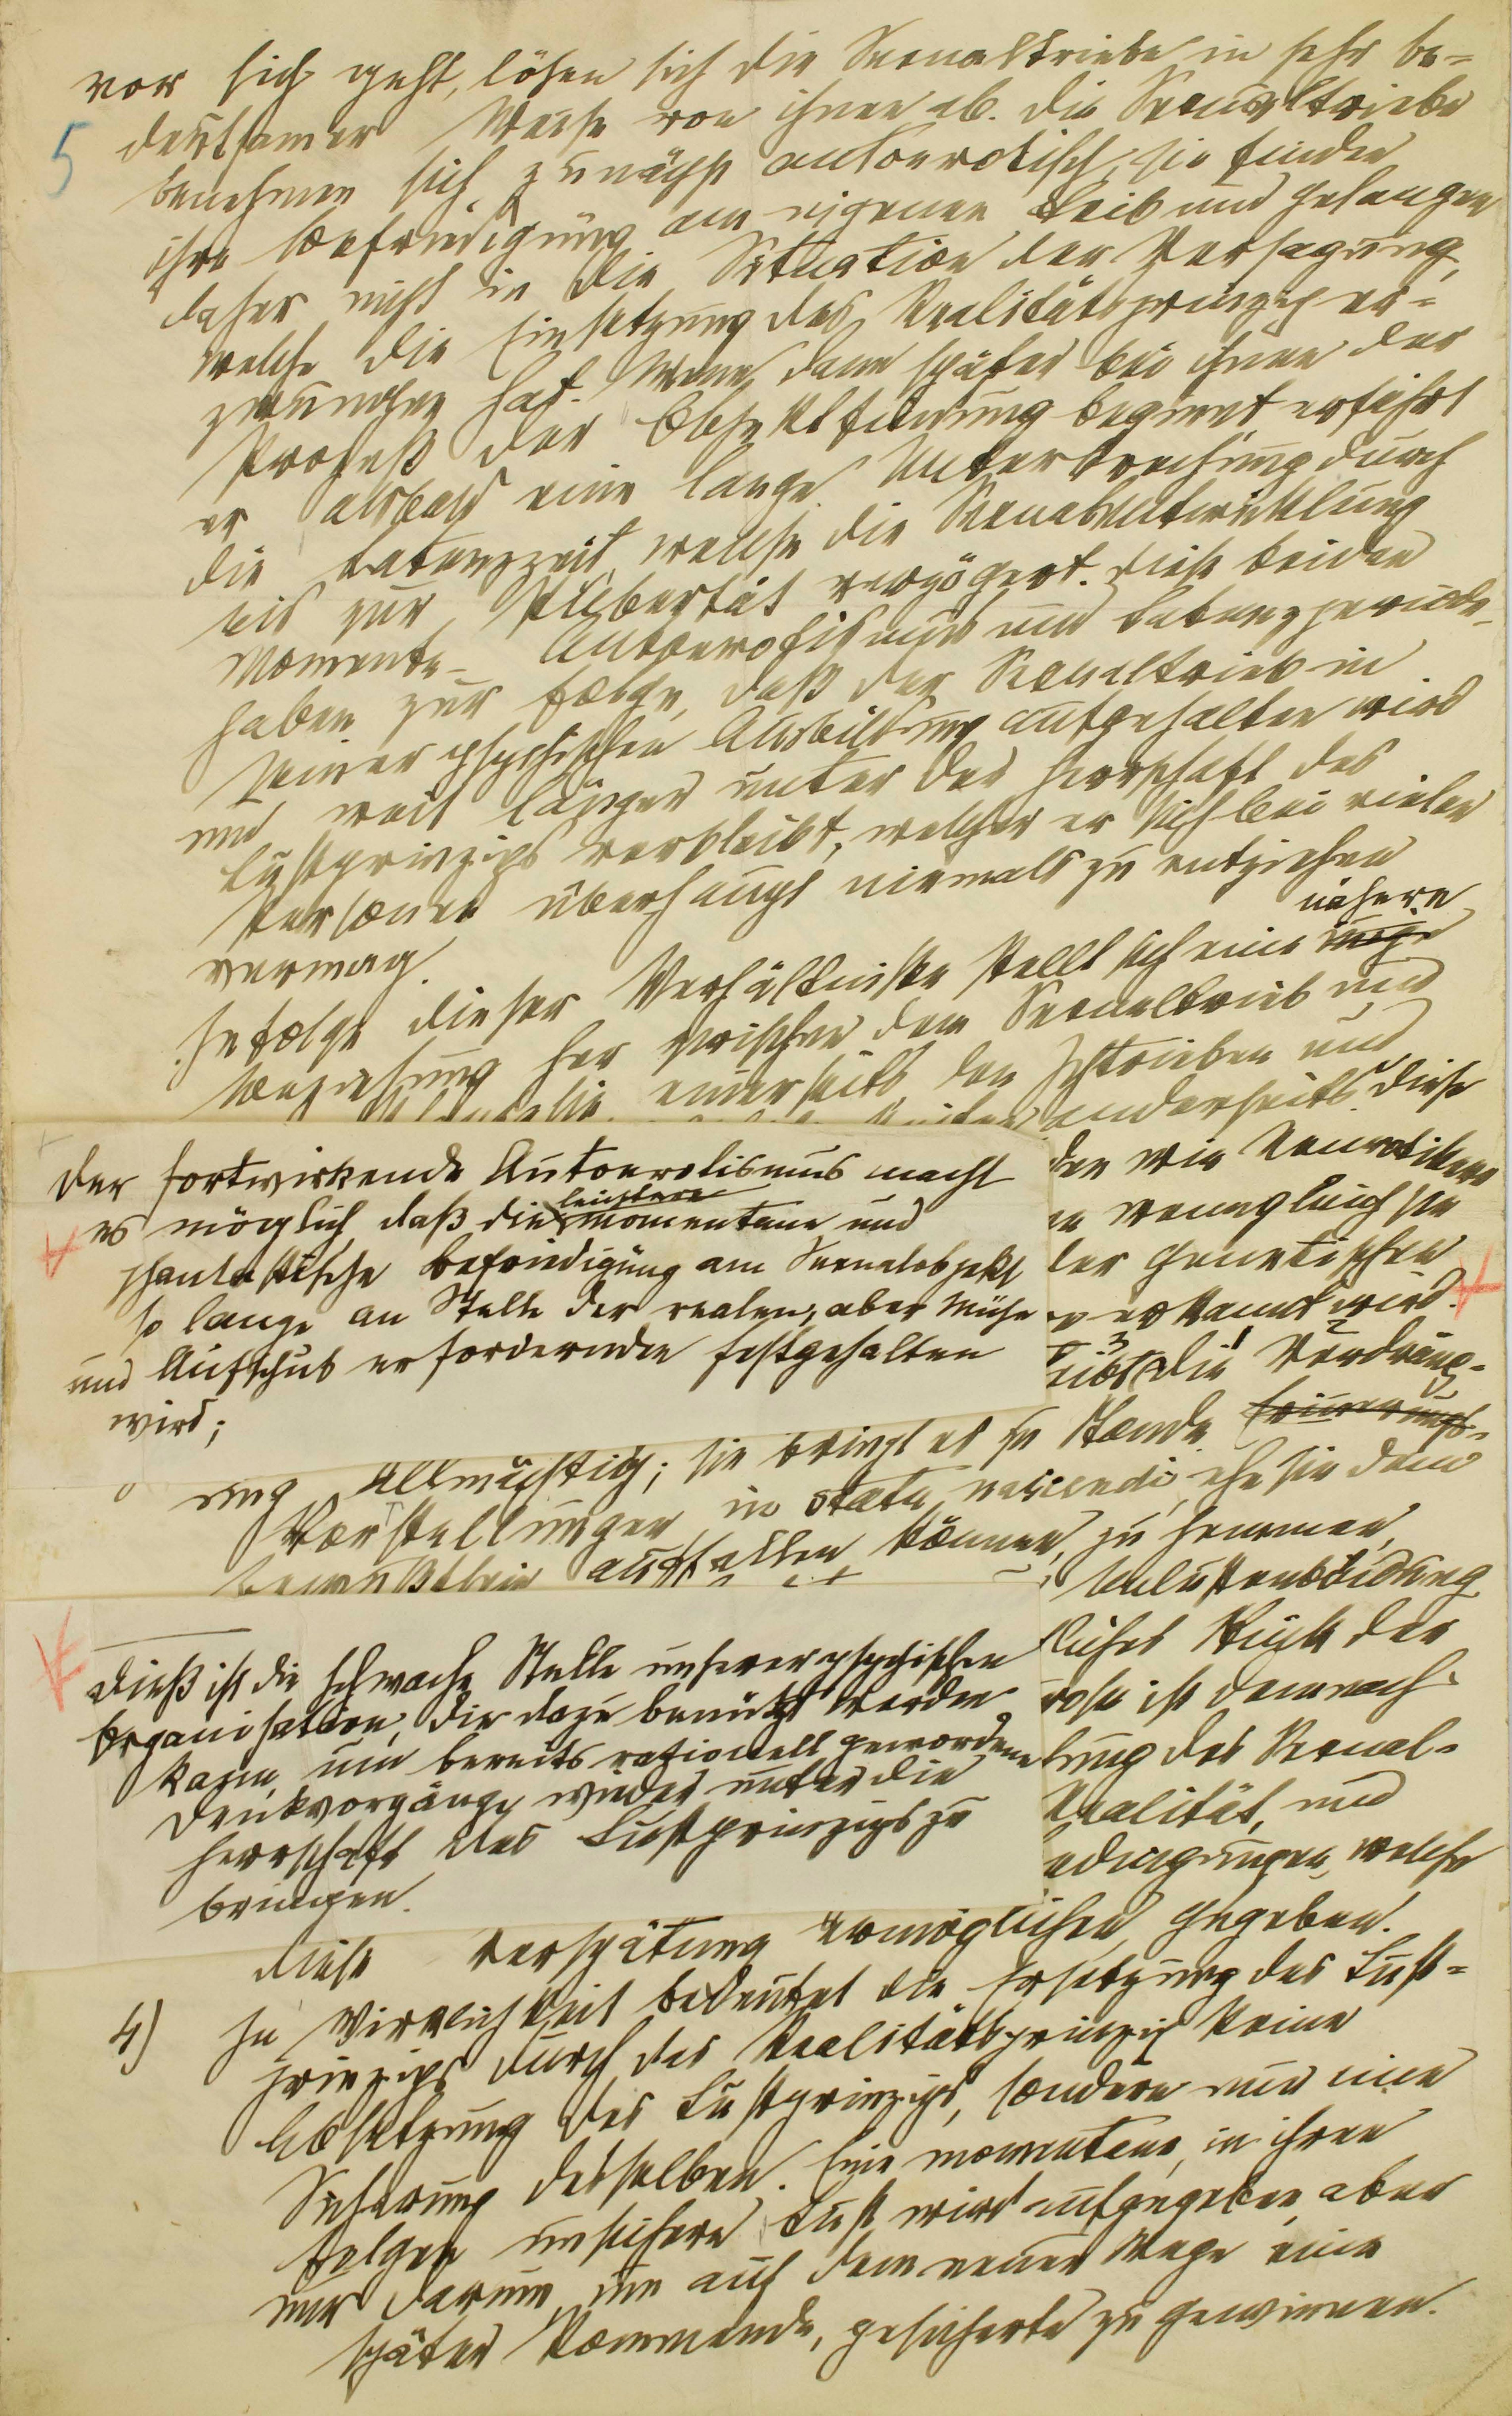 5
vor sich geht, lösen sich die Sexualtriebe in sehr be-
deutsamer Weise von ihnen ab. Die Sexualtriebe
benehmen sich zunächst autoerotisch, sie finden
ihre Befriedigung am eigenen Leib und gelangen
daher nicht in die Situation der Versagung,
welche die Einsetzung des Realitätsprinzips er-
zwungen hat. Wenn dann später bei ihnen der
Prozeß der Objektfindung beginnt erfährt
er alsbald eine lange Unterbrechung durch
die Latenzzeit, welche die Sexualentwicklung
bis zur Pubertät verzögert. Diese beiden
Momente – Autoerotismus und Latenzperiode –
haben zur Folge, daß der Sexualtrieb in
seiner psychischen Ausbildung aufgehalten wird
und weit länger unter der Herrschaft des
Lustprinzips verbleibt, welcher er sich bei vielen
Personen überhaupt niemals zu entziehen
vermag.
nähere
Infolge dieser Verhältnisse stellt sich eine enge
Beziehung her zwischen dem Sexualtrieb und
einerseits den Ichtrieben und
anderseits. Diese
Der fortwirkende Autoerotismus macht
leichtere
es möglich, daß die momentane und
phantastische Befriedigung am Sexualobjekt
so lange an Stelle der realen, aber Mühe
und Aufschub erfordernden festgehalten
wird;
den wie Neurotikern
wenngleich sie
der genetischen
erkannt wird.
3 1 2
die Verdrän-
gung allmächtig; sie bringt es zu Stande Erinnerungs-
Vorstellungen in statu nascendi, ehe sie dem
Bewußtsein auffallen können, zu hemmen,
Unlustentbindung
Dieß ist die schwache Stelle unserer psychischen
Organisation, die dazu benützt werden
kann, um bereits rationell gewordene
Denkvorgänge wieder unter die
Herrschaft des Lustprinzips zu
bringen.
liches Stück der
rose ist demnach
hung des Sexual-
Realität, und
edingungen, welche
diese Verspätung ermöglichen, gegeben.
4) In Wirklichkeit bedeutet die Ersetzung des Lust-
prinzips durch das Realitätsprinzip keine
Absetzung des Lustprinzips, sondern nur eine
Sicherung desselben. Eine momentane, in ihren
Folgen unsichere Lust wird aufgegeben, aber
nur darum, um auf dem neuen Wege eine
später kommende, gesicherte zu gewinnen.